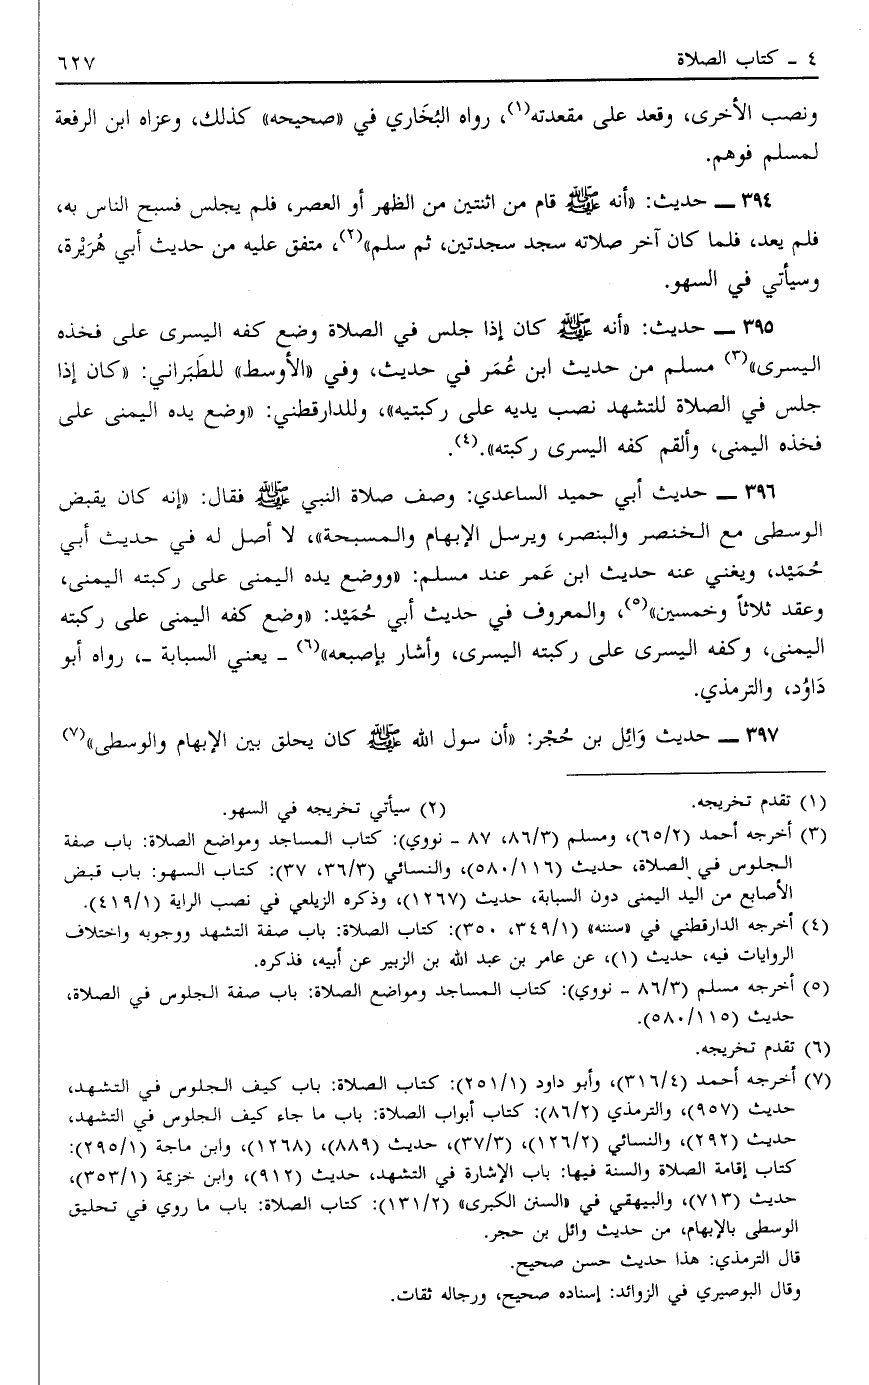 ٤ ـ كتاب الصلاة ٦٢٧
ونصب الأخرى، وقعد على مقعدته(١)، رواه البُخَاري في «صحيحه» كذلك، وعزاه ابن الرفعة
لمسلم فوهم.
٣٩٤ ـ حديث: «أنه ﷺ قام من اثنتين من الظهر أو العصر، فلم يجلس فسبح الناس به،
فلم يعد، فلما كان آخر صلاته سجد سجدتين، ثم سلم»(٢)، متفق عليه من حديث أبي هُرَيْرة،
وسيأتي في السهو.
٣٩٥ ـ حديث: «أنه ﷺ كان إذا جلس في الصلاة وضع كفه اليسرى على فخذه
اليسرى»(٣) مسلم من حديث ابن عُمَر في حديث، وفي «الأوسط» للطَبَراني: «كان إذا
جلس في الصلاة للتشهد نصب يديه على ركبتيه»، وللدارقطني: «وضع يده اليمنى على
فخذه اليمنى، وألقم كفه اليسرى ركبته».(٤).
٣٩٦ ـ حديث أبي حميد الساعدي: وصف صلاة النبي ﷺ فقال: «إنه كان يقبض
الوسطى مع الخنصر والبنصر، ويرسل الإبهام والمسبحة»، لا أصل له في حديث أبي
حُمَيْد، ويغني عنه حديث ابن عَمر عند مسلم: «ووضع يده اليمنى على ركبته اليمنى،
وعقد ثلاثاً وخمسين»(٥)، والمعروف في حديث أبي حُمَيْد: «وضع كفه اليمنى على ركبته
اليمنى، وكفه اليسرى على ركبته اليسرى، وأشار بإصبعه»(٦) ـ يعني السبابة ـ، رواه أبو
دَاوُد، والترمذي.
٣٩٧ ـ حديث وَائِل بن حُجْر: «أن سول الله ﷺ كان يحلق بين الإبهام والوسطى»(٧)
(١) تقدم تخريجه. (٢) سيأتي تخريجه في السهو.
(٣) أخرجه أحمد (٦٥/٢)، ومسلم (٨٦/٣، ٨٧ ـ نووي): كتاب المساجد ومواضع الصلاة: باب صفة
الجلوس في الصلاة، حديث (٥٨٠/١١٦)، والنسائي (٣٦/٣، ٣٧): كتاب السهو: باب قبض
الأصابع من اليد اليمنى دون السبابة، حديث (١٢٦٧)، وذكره الزيلعي في نصب الراية (٤١٩/١).
(٤) أخرجه الدارقطني في «سننه» (٣٤٩/١، ٣٥٠): كتاب الصلاة: باب صفة التشهد ووجوبه واختلاف
الروايات فيه، حديث (١)، عن عامر بن عبد الله بن الزبير عن أبيه، فذكره.
(٥) أخرجه مسلم (٨٦/٣ ـ نووي): كتاب المساجد ومواضع الصلاة: باب صفة الجلوس في الصلاة،
حديث (٥٨٠/١١٥).
(٦) تقدم تخريجه.
(٧) أخرجه أحمد (٣١٦/٤)، وأبو داود (٢٥١/١): كتاب الصلاة: باب كيف الجلوس في التشهد،
حديث (٩٥٧)، والترمذي (٨٦/٢): كتاب أبواب الصلاة: باب ما جاء كيف الجلوس في التشهد،
حديث (٢٩٢)، والنسائي (١٢٦/٢)، (٣٧/٣)، حديث (٨٨٩)، (١٢٦٨)، وابن ماجة (٢٩٥/١):
كتاب إقامة الصلاة والسنة فيها: باب الإشارة في التشهد، حديث (٩١٢)، وابن خزيمة (٣٥٣/١)،
حديث (٧١٣)، والبيهقي في «السنن الكبرى» (١٣١/٢): كتاب الصلاة: باب ما روي في تحليق
الوسطى بالإبهام، من حديث وائل بن حجر.
قال الترمذي: هذا حديث حسن صحيح.
وقال البوصيري في الزوائد: إسناده صحيح، ورجاله ثقات.